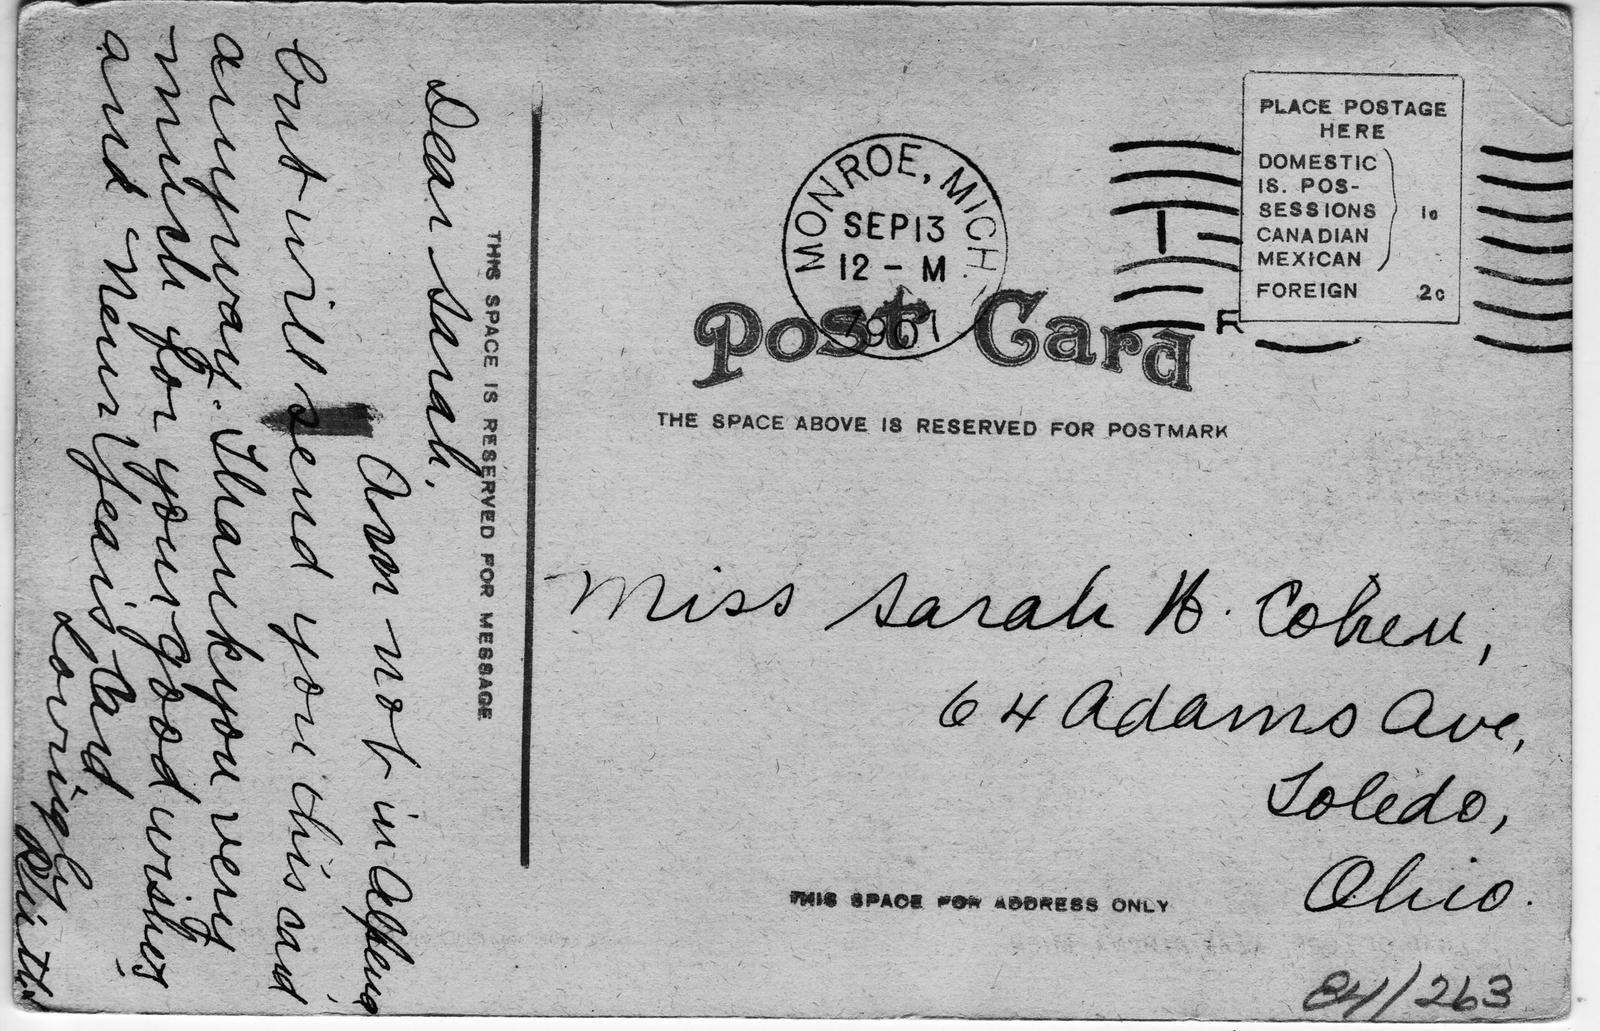 Dear Sarah,
Am not in Alpena
but will send you this card
anyway. Thank you very
much for your good wishes
and New Years Card.
Lovingly
THIS SPACE IS RESERVED FOR MESSAGE
MONROE, MICH.
SEP 13
12 - M
PLACE POSTAGE
HERE
DOMESTIC
IS. POS-
SESSIONS
CANADIAN
MEXICAN
1c
FOREIGN 2c
Post Card
THE SPACE ABOVE IS RESERVED FOR POSTMARK
Miss Sarah H. Cohen,
64 Adams Ave,
Toledo,
Ohio.
THIS SPACE FOR ADDRESS ONLY
84/263